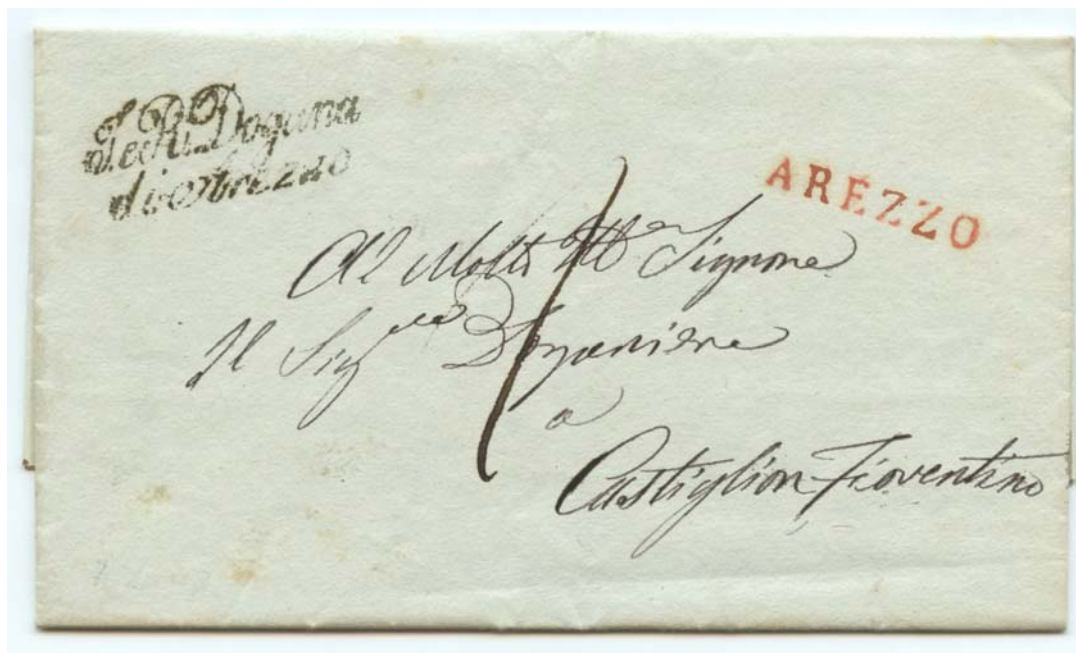 I. e R. Dogana
di Arezzo
AREZZO
Al Molto Ill.re Signore
Il Sig.re Doganiere
a
Castiglion Fiorentino